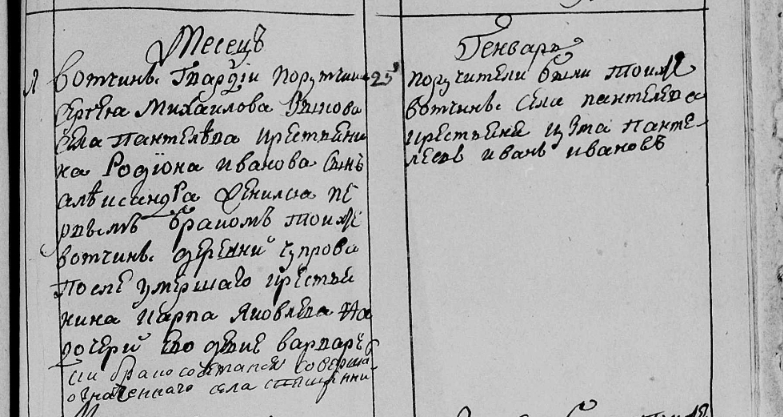 Месецъ
Генварь
вотчины Гвардіи порутчика
Сергея Михаилова сынова
села Пантелѣва крестьяни
на Родиона Иванова сынъ
алѣксандра женился пе
рвымъ бракомъ тоия
вотчины деревни чупрова
после умершаго крестья
нина карпа яковлева на
дочери ево девке варваре
сии бракосочетался соверша
означеннаго села священни
25
поручители были тоия
вотчины села пантелева
крестьяне кузма панте
леевъ иванъ ивановъ